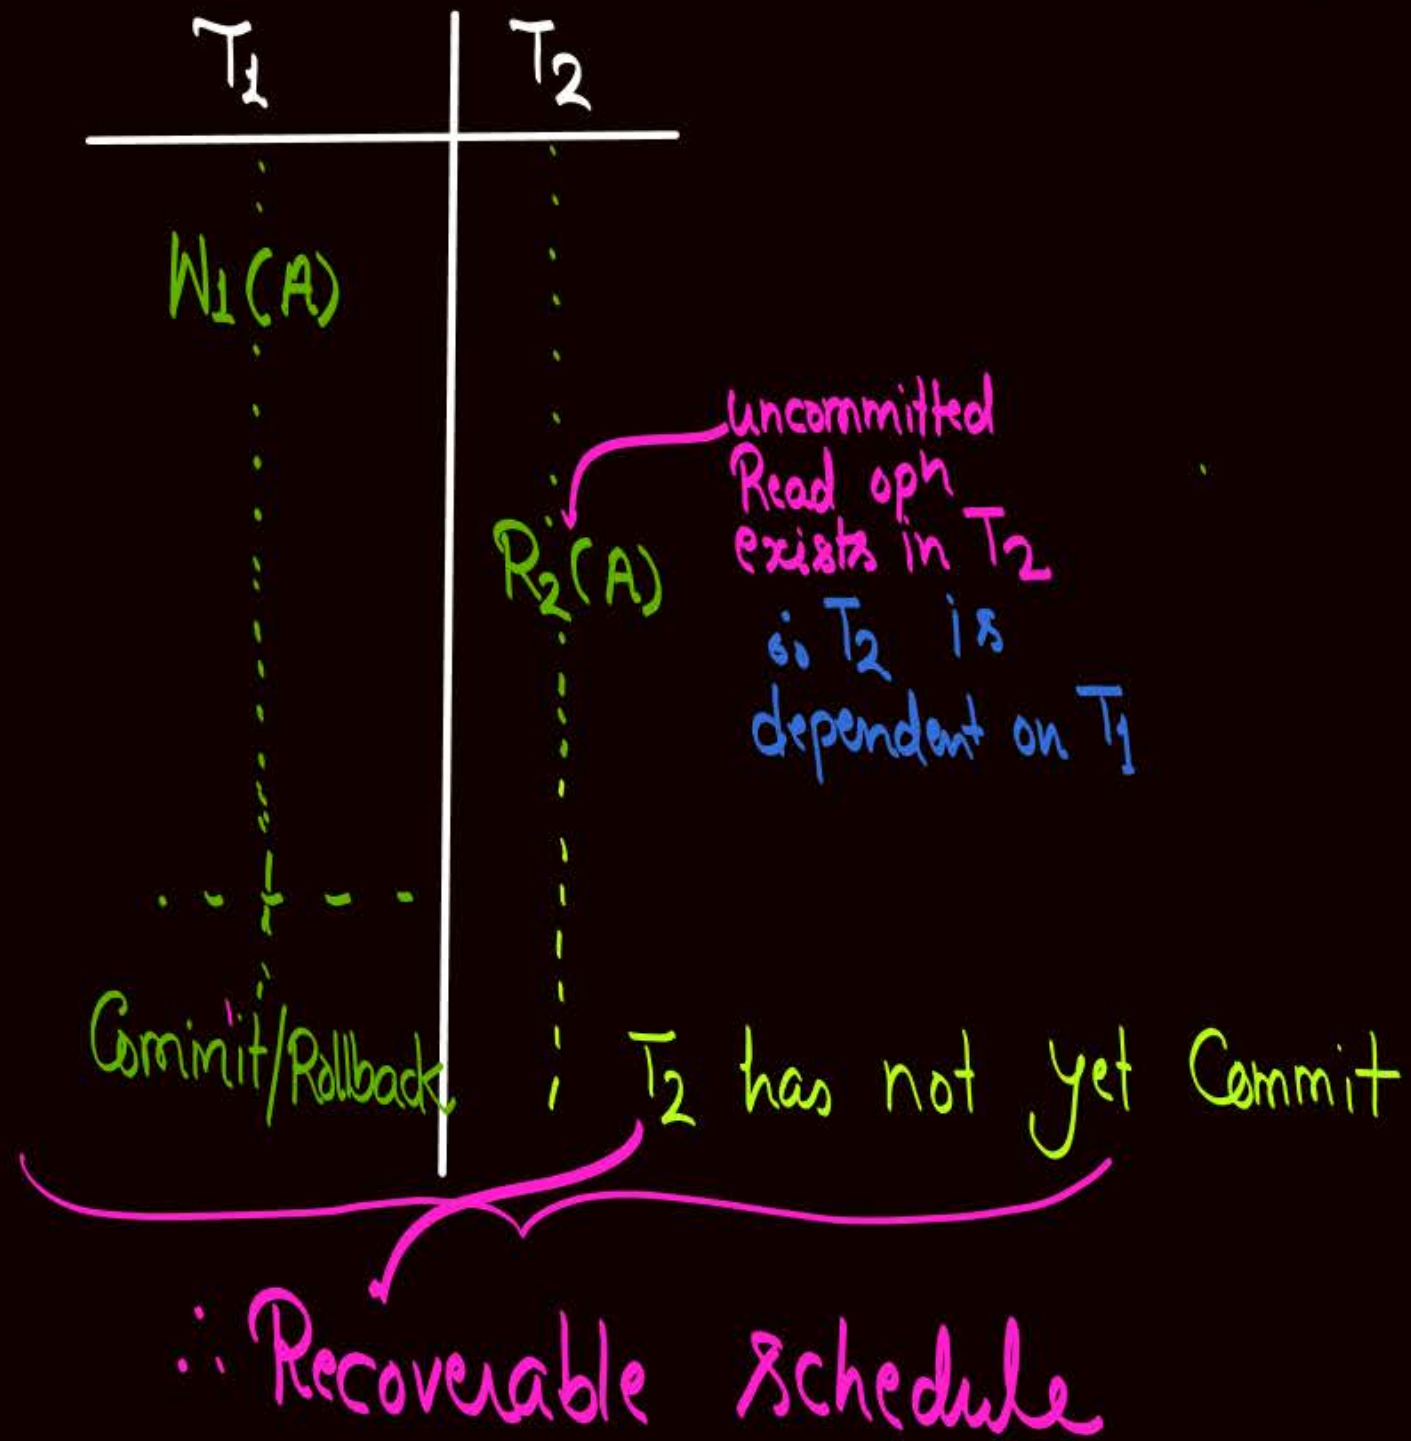 T1 T2
W1(A)
uncommitted
Read opn
exists in T2
R2(A)
∴ T2 is
dependent on T1
Commit/Rollback T2 has not yet Commit
∴ Recoverable schedule